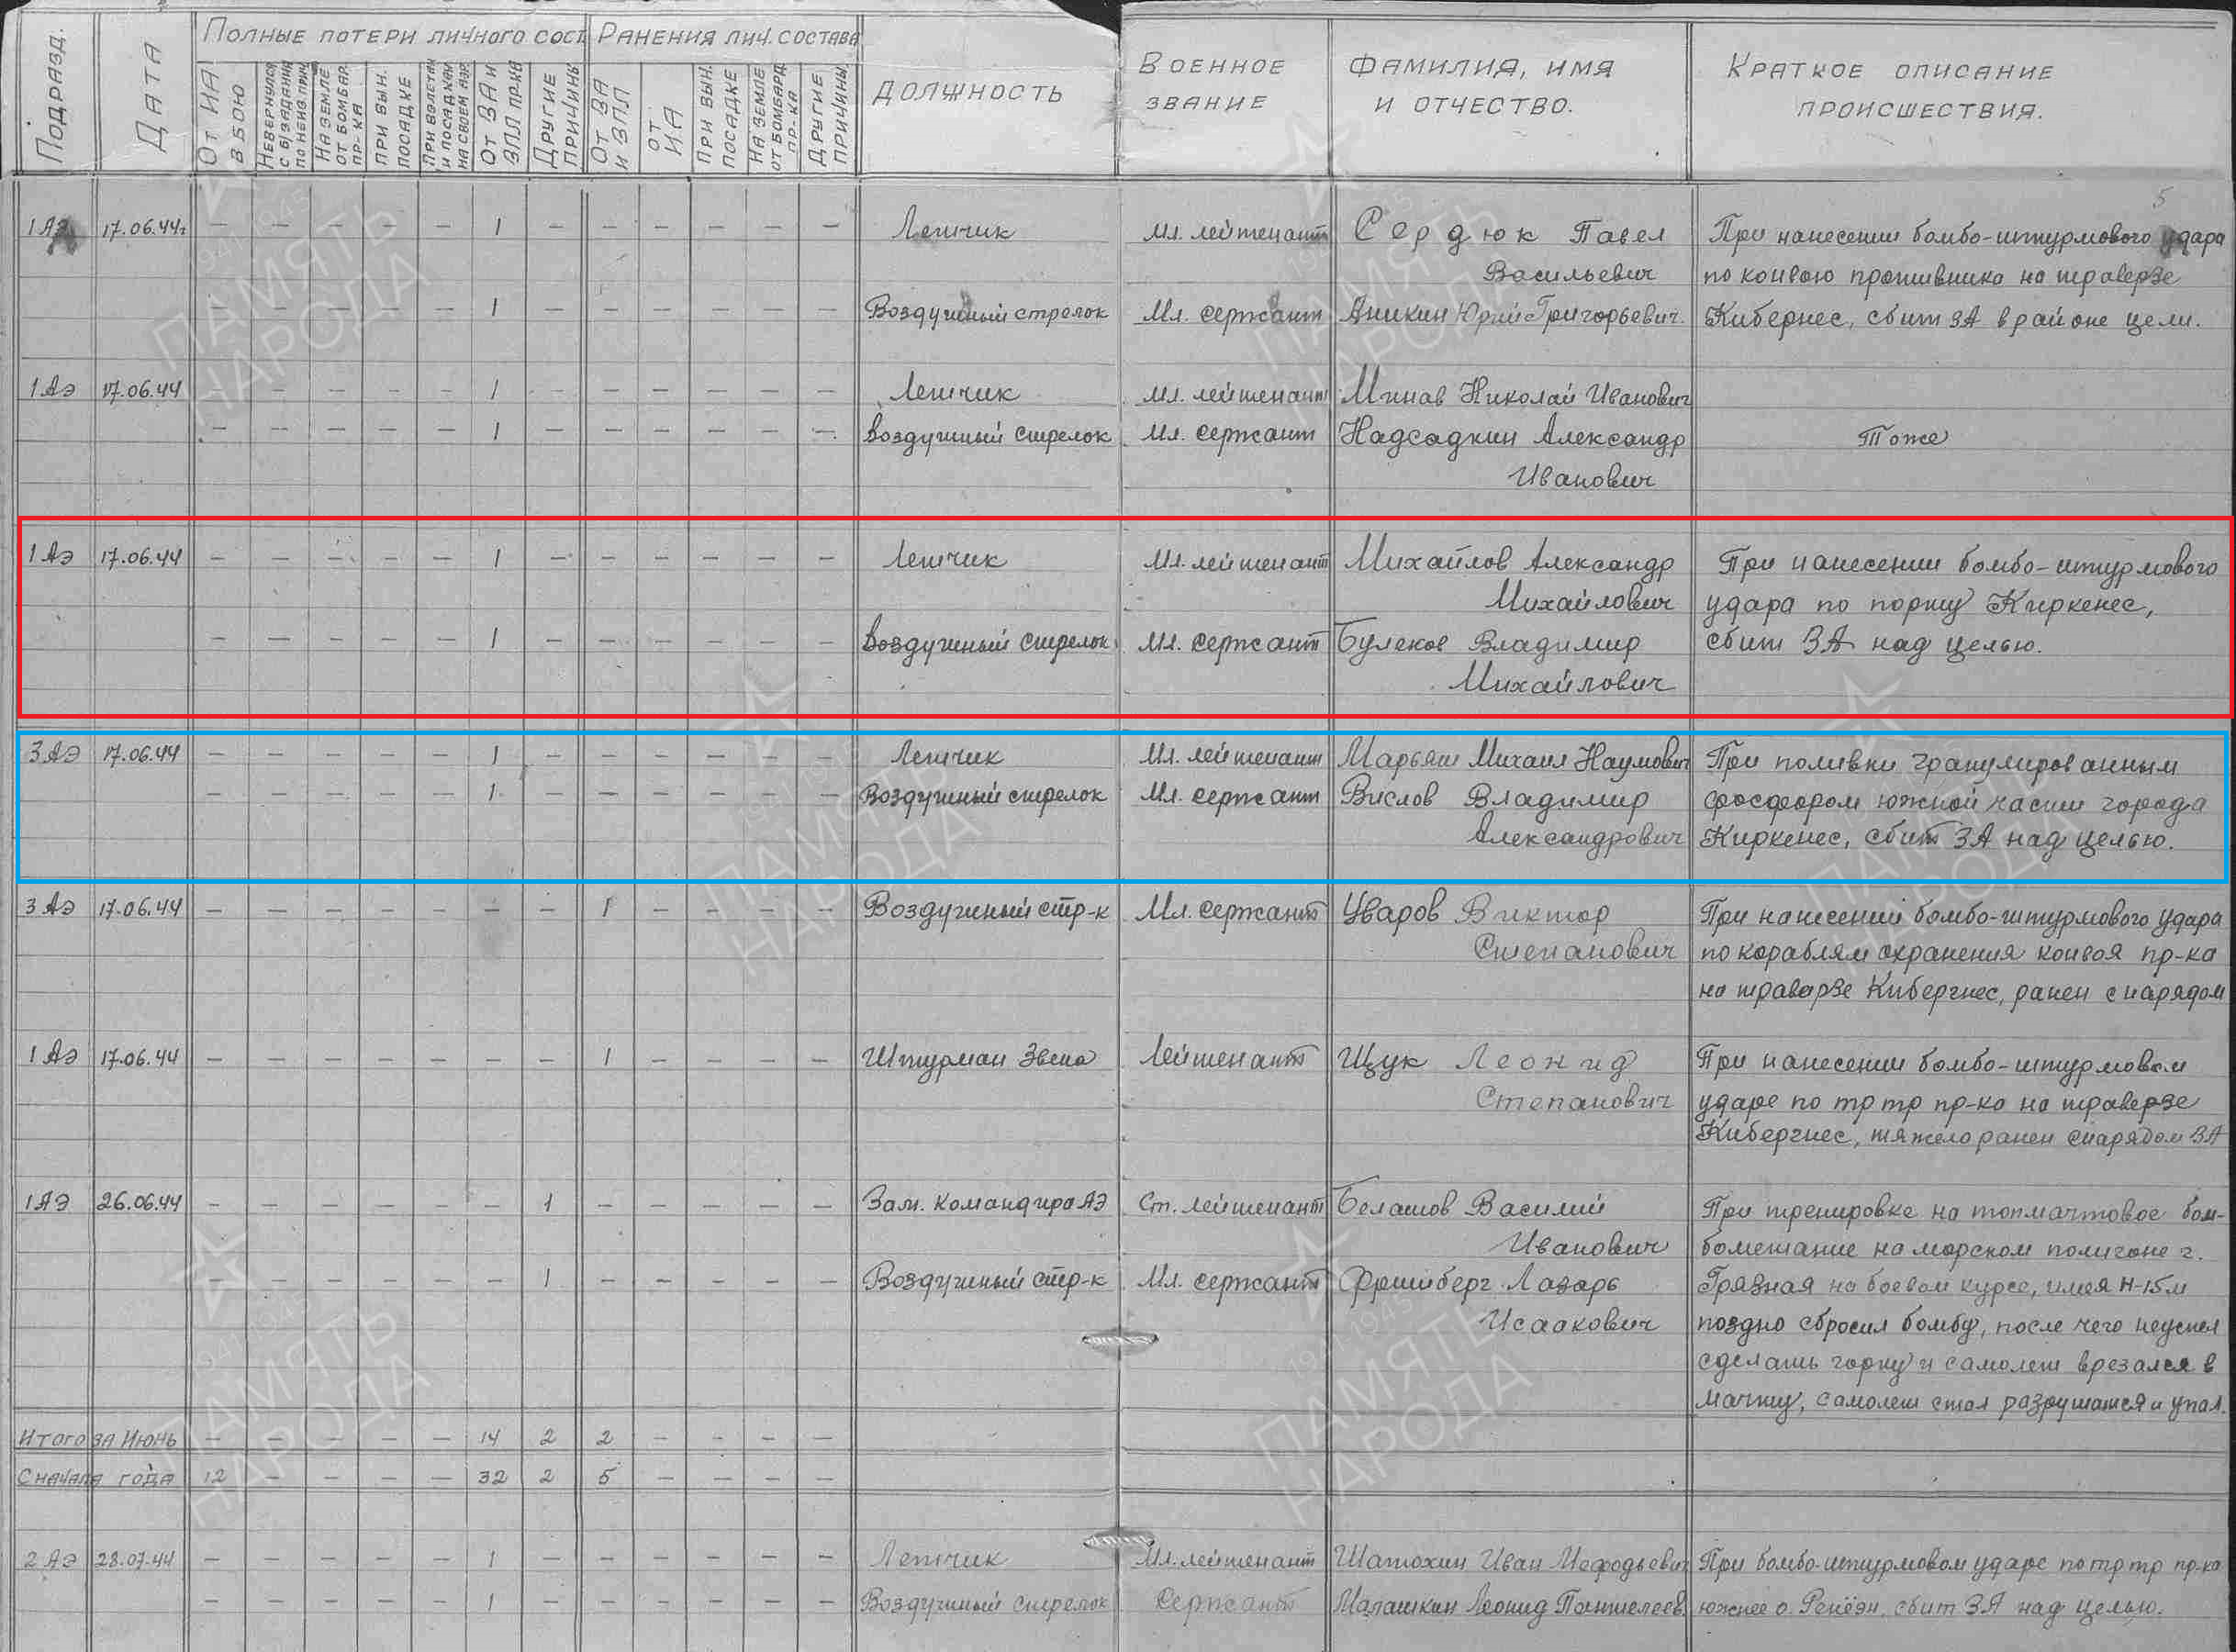 Полные потери личного сост. Ранения лич. состава
Подразд.
Дата
От ИА в бою
Невернулся с б/задания по неизв. прич.
На земле от бомбар. пр-ка
При вын. посадке
При взлетах и посадках на своем аэр.
От ЗА и ЗПЛ пр-ка
Другие причины
От ЗА и ЗПЛ
От ИА
При вын. посадке
На земле от бомбард. пр-ка
Другие причины
Должность
Военное звание
Фамилия, имя и отчество.
Краткое описание происшествия.
5
1 АЭ 17.06.44г – – – – – 1 – – – – – – Летчик Мл. лейтенант Сердюк Павел При нанесении бомбо-штурмового удара
Васильевич по конвою противника на траверзе
– – – – – 1 – – – – – – Воздушный стрелок Мл. сержант Аникин Юрий Григорьевич. Кибернес, сбит ЗА в районе цели.
1 АЭ 17.06.44 – – – – – 1 – – – – – – Летчик Мл. лейтенант Минав Николай Иванович
– – – – – 1 – – – – – – Воздушный стрелок Мл. сержант Надсадкин Александр Тоже
Иванович
1 АЭ 17.06.44 – – – – – 1 – – – – – – Летчик Мл. лейтенант Михайлов Александр При нанесении бомбо-штурмового
Михайлович удара по порту Киркенес,
– – – – – 1 – – – – – – Воздушный стрелок Мл. сержант Булеков Владимир сбит ЗА над целью.
Михайлович
3 АЭ 17.06.44 – – – – – 1 – – – – – – Летчик Мл. лейтенант Марьяш Михаил Наумович При поливки гранулированным
– – – – – 1 – – – – – – Воздушный стрелок Мл. сержант Вислов Владимир фосфором южной части города
Александрович Киркенес, сбит ЗА над целью.
3 АЭ 17.06.44 – – – – – – – 1 – – – – Воздушный стр-к Мл. сержант Уваров Виктор При нанесении бомбо-штурмового удара
Степанович по кораблям охранения конвоя пр-ка
на траверзе Кибергнес, ранен снарядом
1 АЭ 17.06.44 – – – – – – – 1 – – – – Штурман Звена Лейтенант Щук Леонид При нанесении бомбо-штурмовом
Степанович ударе по тр тр пр-ка на траверзе
Кибергнес, тяжело ранен снарядом ЗА
1 АЭ 26.06.44 – – – – – – 1 – – – – – Зам. командира АЭ Ст. лейтенант Белашов Василий При тренировке на топмачтовое бом-
Иванович бометание на морском полигоне г.
– – – – – – 1 – – – – – Воздушный стр-к Мл. сержант Фришберг Лазарь Грязная на боевом курсе, имея Н-15м
Исаакович поздно сбросил бомбу, после чего неуспел
сделать горку и самолет врезался в
мачту, самолет стал разрушатся и упал.
Итого за Июнь – – – – – 14 2 2 – – – –
С начала года 12 – – – – 32 2 5 – – – –
2 АЭ 28.07.44 – – – – – 1 – – – – – – Летчик Мл. лейтенант Шатохин Иван Мефодьевич При бомбо-штурмовом ударе по тр тр пр-ка
– – – – – 1 – – – – – – Воздушный стрелок Сержант Малашкин Леонид Пантелеев. южнее о. Ренёэн, сбит ЗА над целью.
ПАМЯТЬ НАРОДА
1941 1945